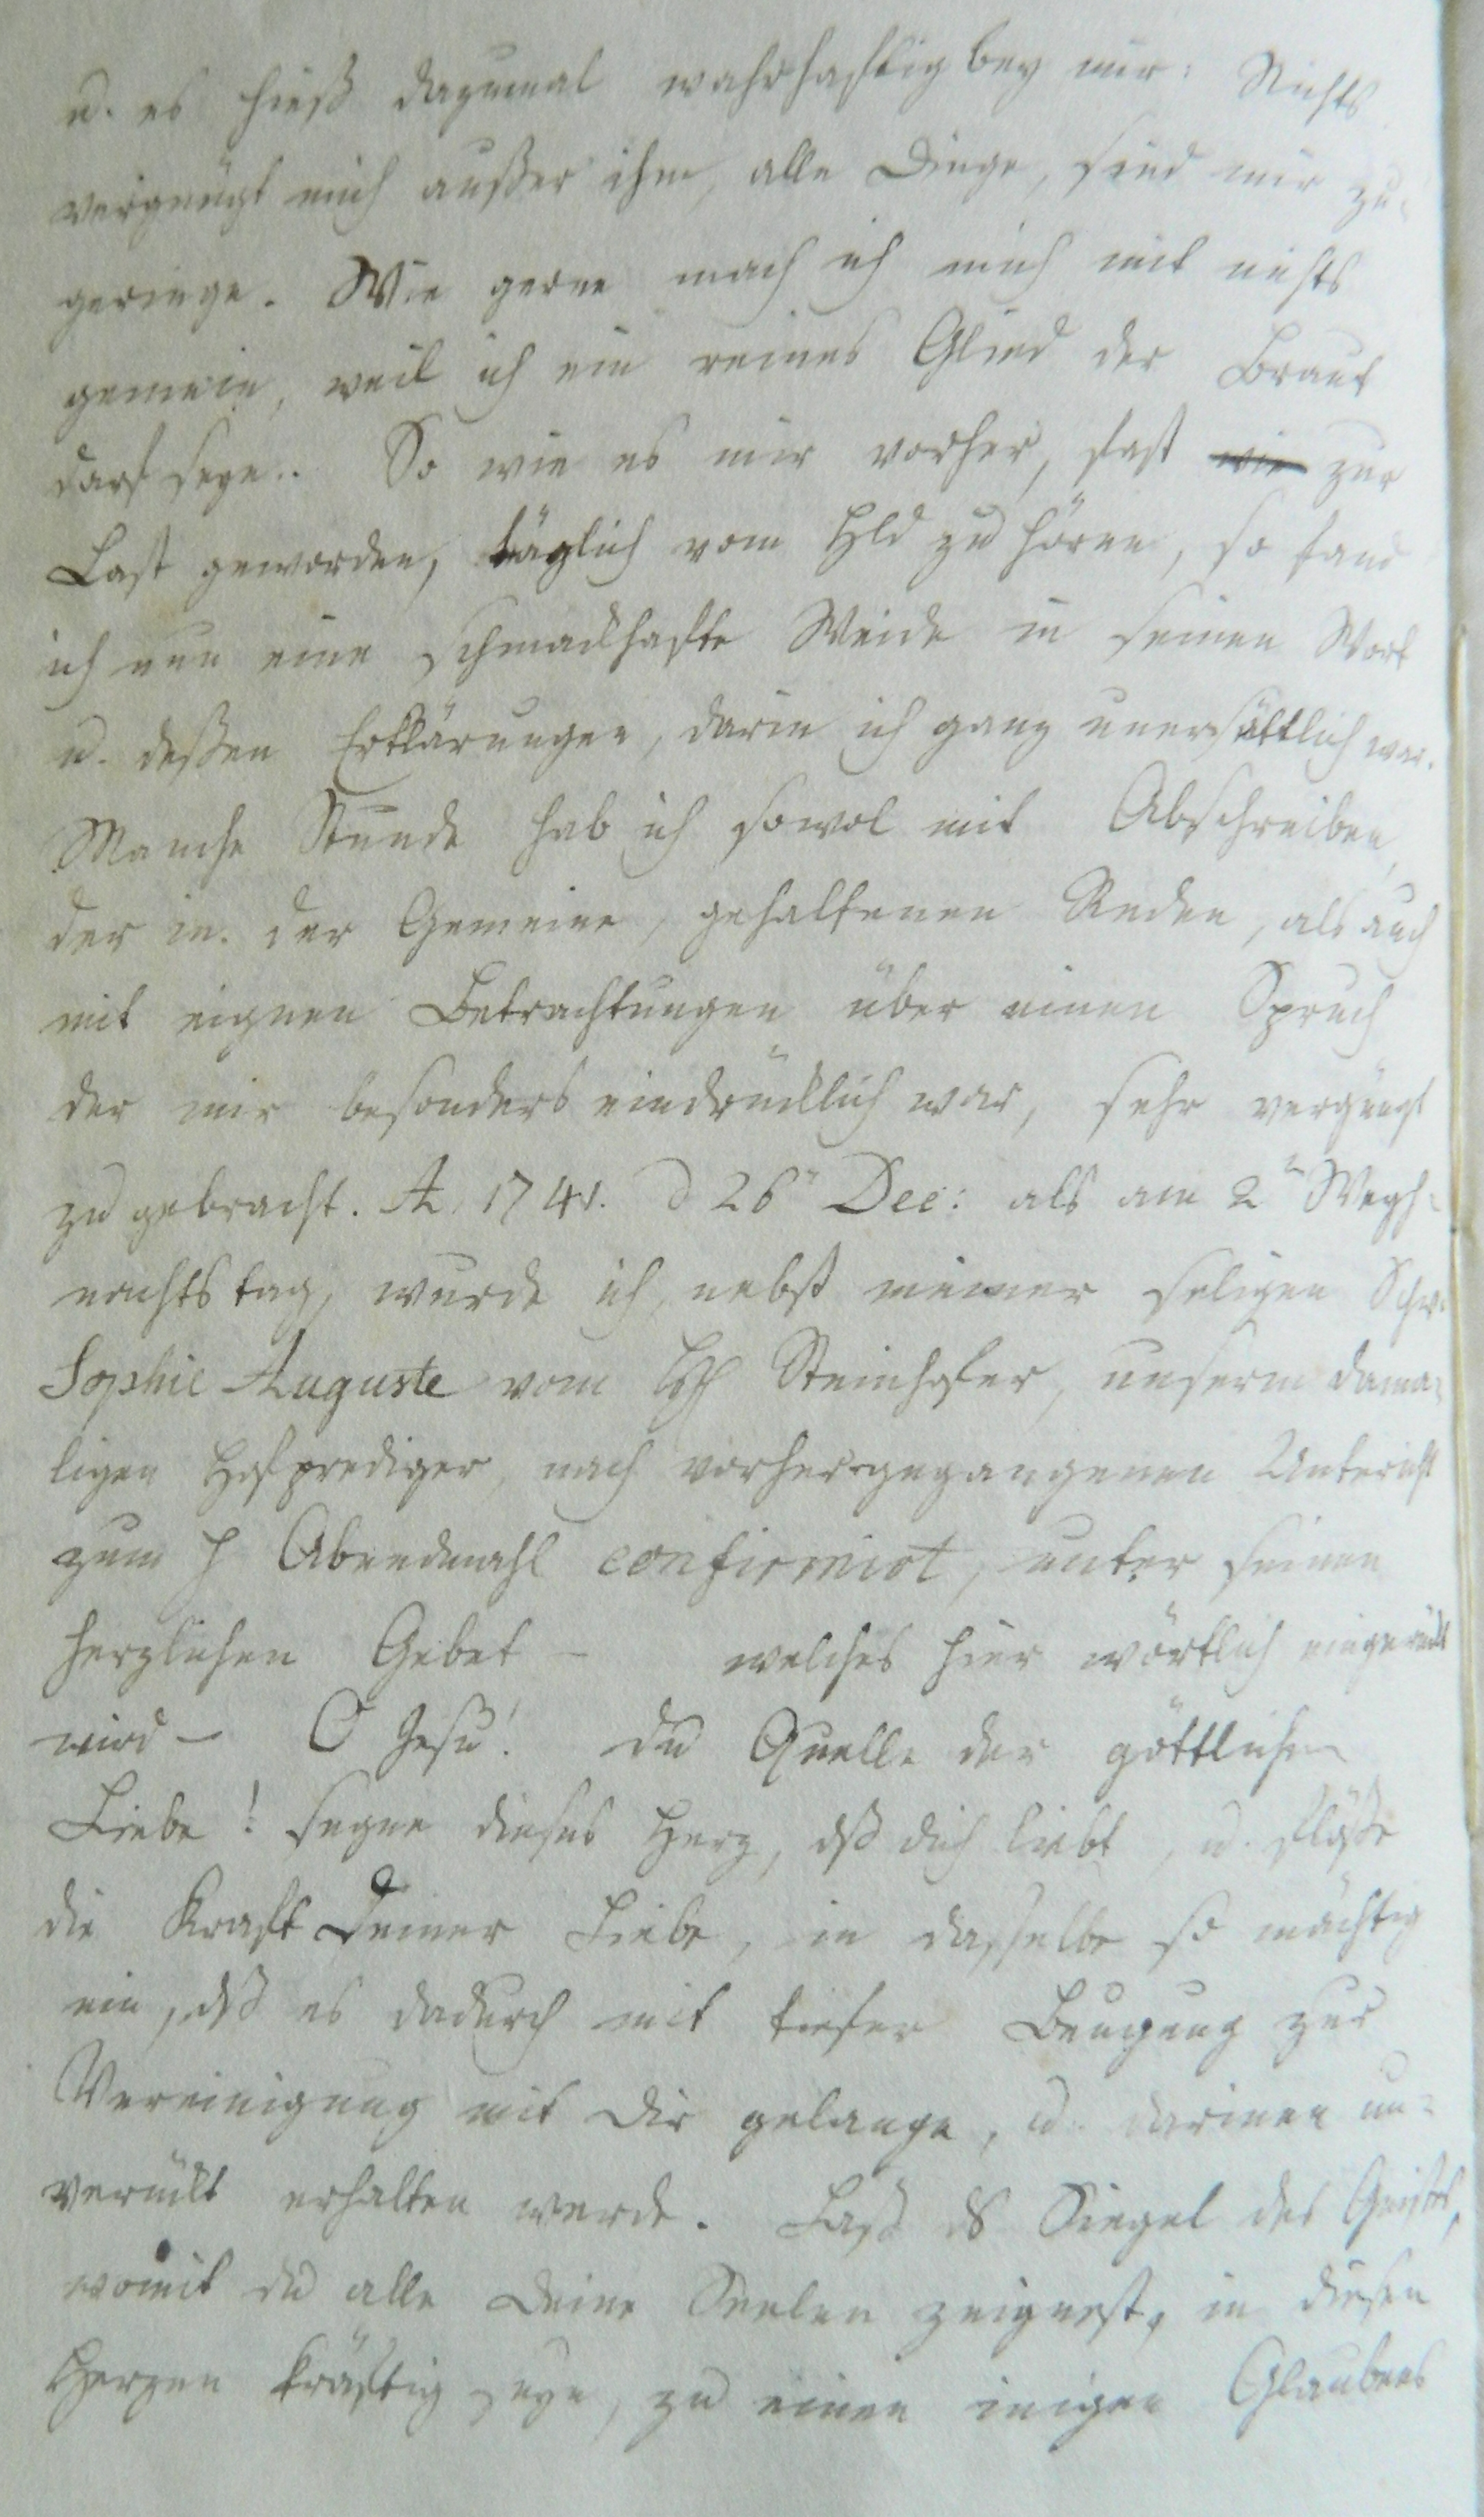 u. es hieß dazumal wahrhaftig bey mir: Nichts
vergnügt mich außer ihm, alle Dinge, sind mir zu
geringe. Wie gerne mach ich mich mit nichts
gemein, weil ich ein reines Glied der Braut
darf seyn. So wie es mir vorher, fast wie zur
Last geworden, täglich vom Hld zu hören, so fand
ich nun eine schmackhafte Weide in seinen Wort
u. deßen Erklärungen, darin ich ganz unersättlich war.
Manche Stunde hab ich sowol mit Abschreiben,
der in der Gemeine, gehaltenen Reden, als auch
mit eignen Betrachtungen über einen Spruch
der mir besonders eindrücklich war, sehr vergnügt
zu gebracht. A. 1741. d 26n Dec: als am 2n Weyh-
nachts tag, wurde ich, nebst meiner seligen Schw.
Sophie Auguste vom Steinhofer, unserm dama-
ligen Hofprediger, nach vorhergegangenen Untericht
zum h Abendmahl confirmirt, unter seinen
herzlichen Gebet – welches hier wörtlich eingerückt
wird – O Jesu! du Quelle der göttlichen
Liebe! segne dieses Herz, dß dich liebt, u. flöße
die Kraft Deiner Liebe, in dasselbe so mächtig
ein, dß es dadurch mit tiefer Beugung zur
Vereinigung mit Dir gelange, u. darinen un-
verückt erhalten werde. Laß ds Siegel des Geistes,
womit du alle Deine Seelen zeignest, in diesen
Herzen kräftig seyn, zu einen inigen Glaubens